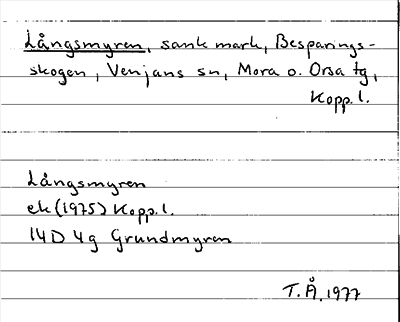 Långsmyren, sank mark, Besparings-
skogen, Venjans sn, Mora o. Orsa tg,
Kopp. l.
Långsmyren
ek (1975) Kopp. l.
14D 4g Grundmyren
T.Å. 1977